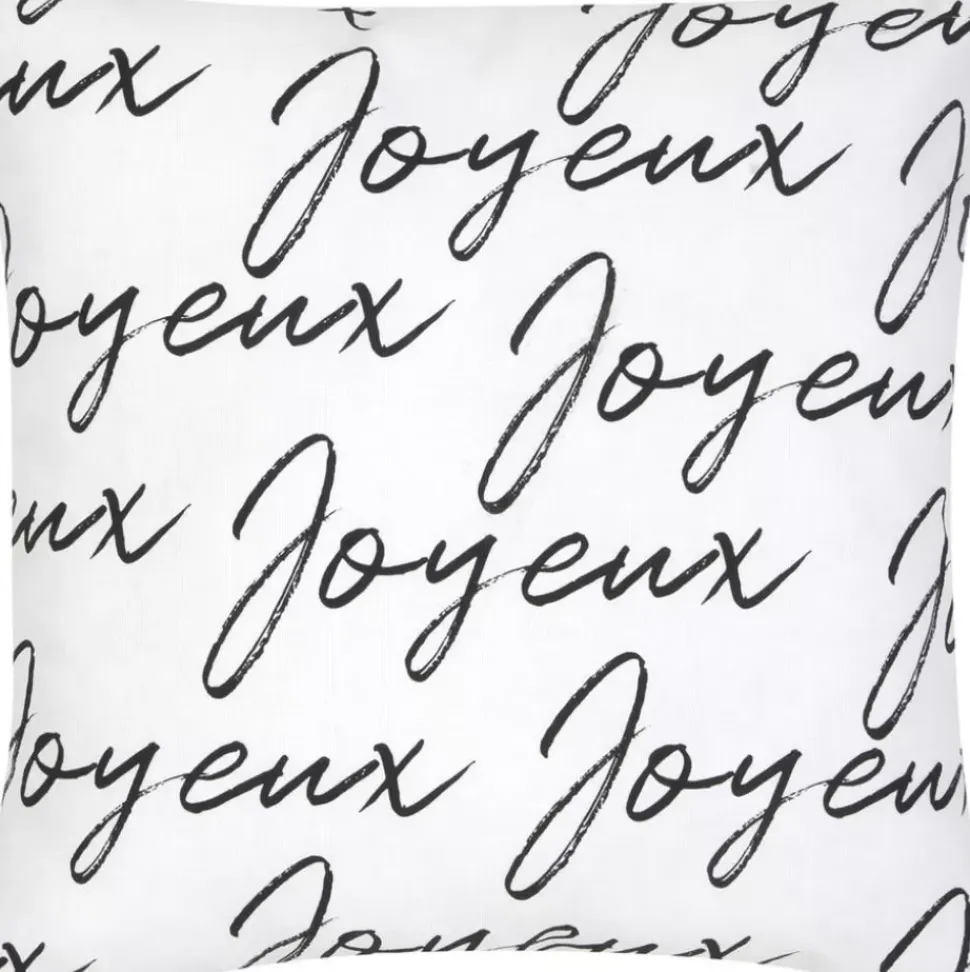 Joyeu
eux Joyeux J
Joyeux Joyeux
eux Joyeux J
Joyeux Joyeu
x Joyeux J